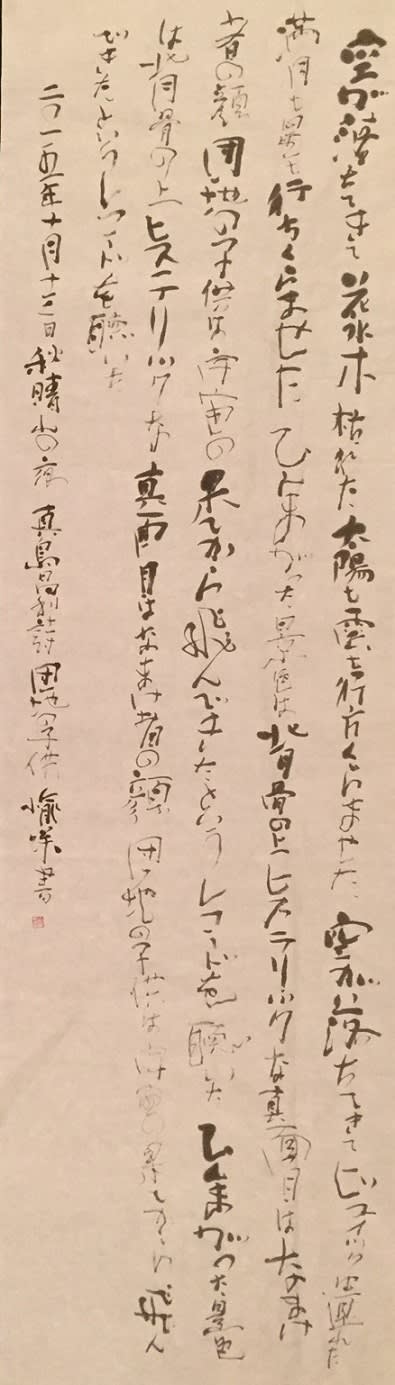 空が落ちてきて花水木枯れた太陽も雲も行方くらませた空が落ちてきてビュイック
満月も星も行方くらませたひんまがった景色は背骨の上ヒステリックな真面目はなまけ
者の顔団地の子供は宇宙の果てから飛んできたというレコードを聴いたひんまがった景色
は背骨の上ヒステリックな真面目はなまけ者の顔団地の子供は宇宙の果てから飛ん
できたというレコードを聴いた
二〇一五年十月十三日秋晴れの夜真島昌利詩団地の子供